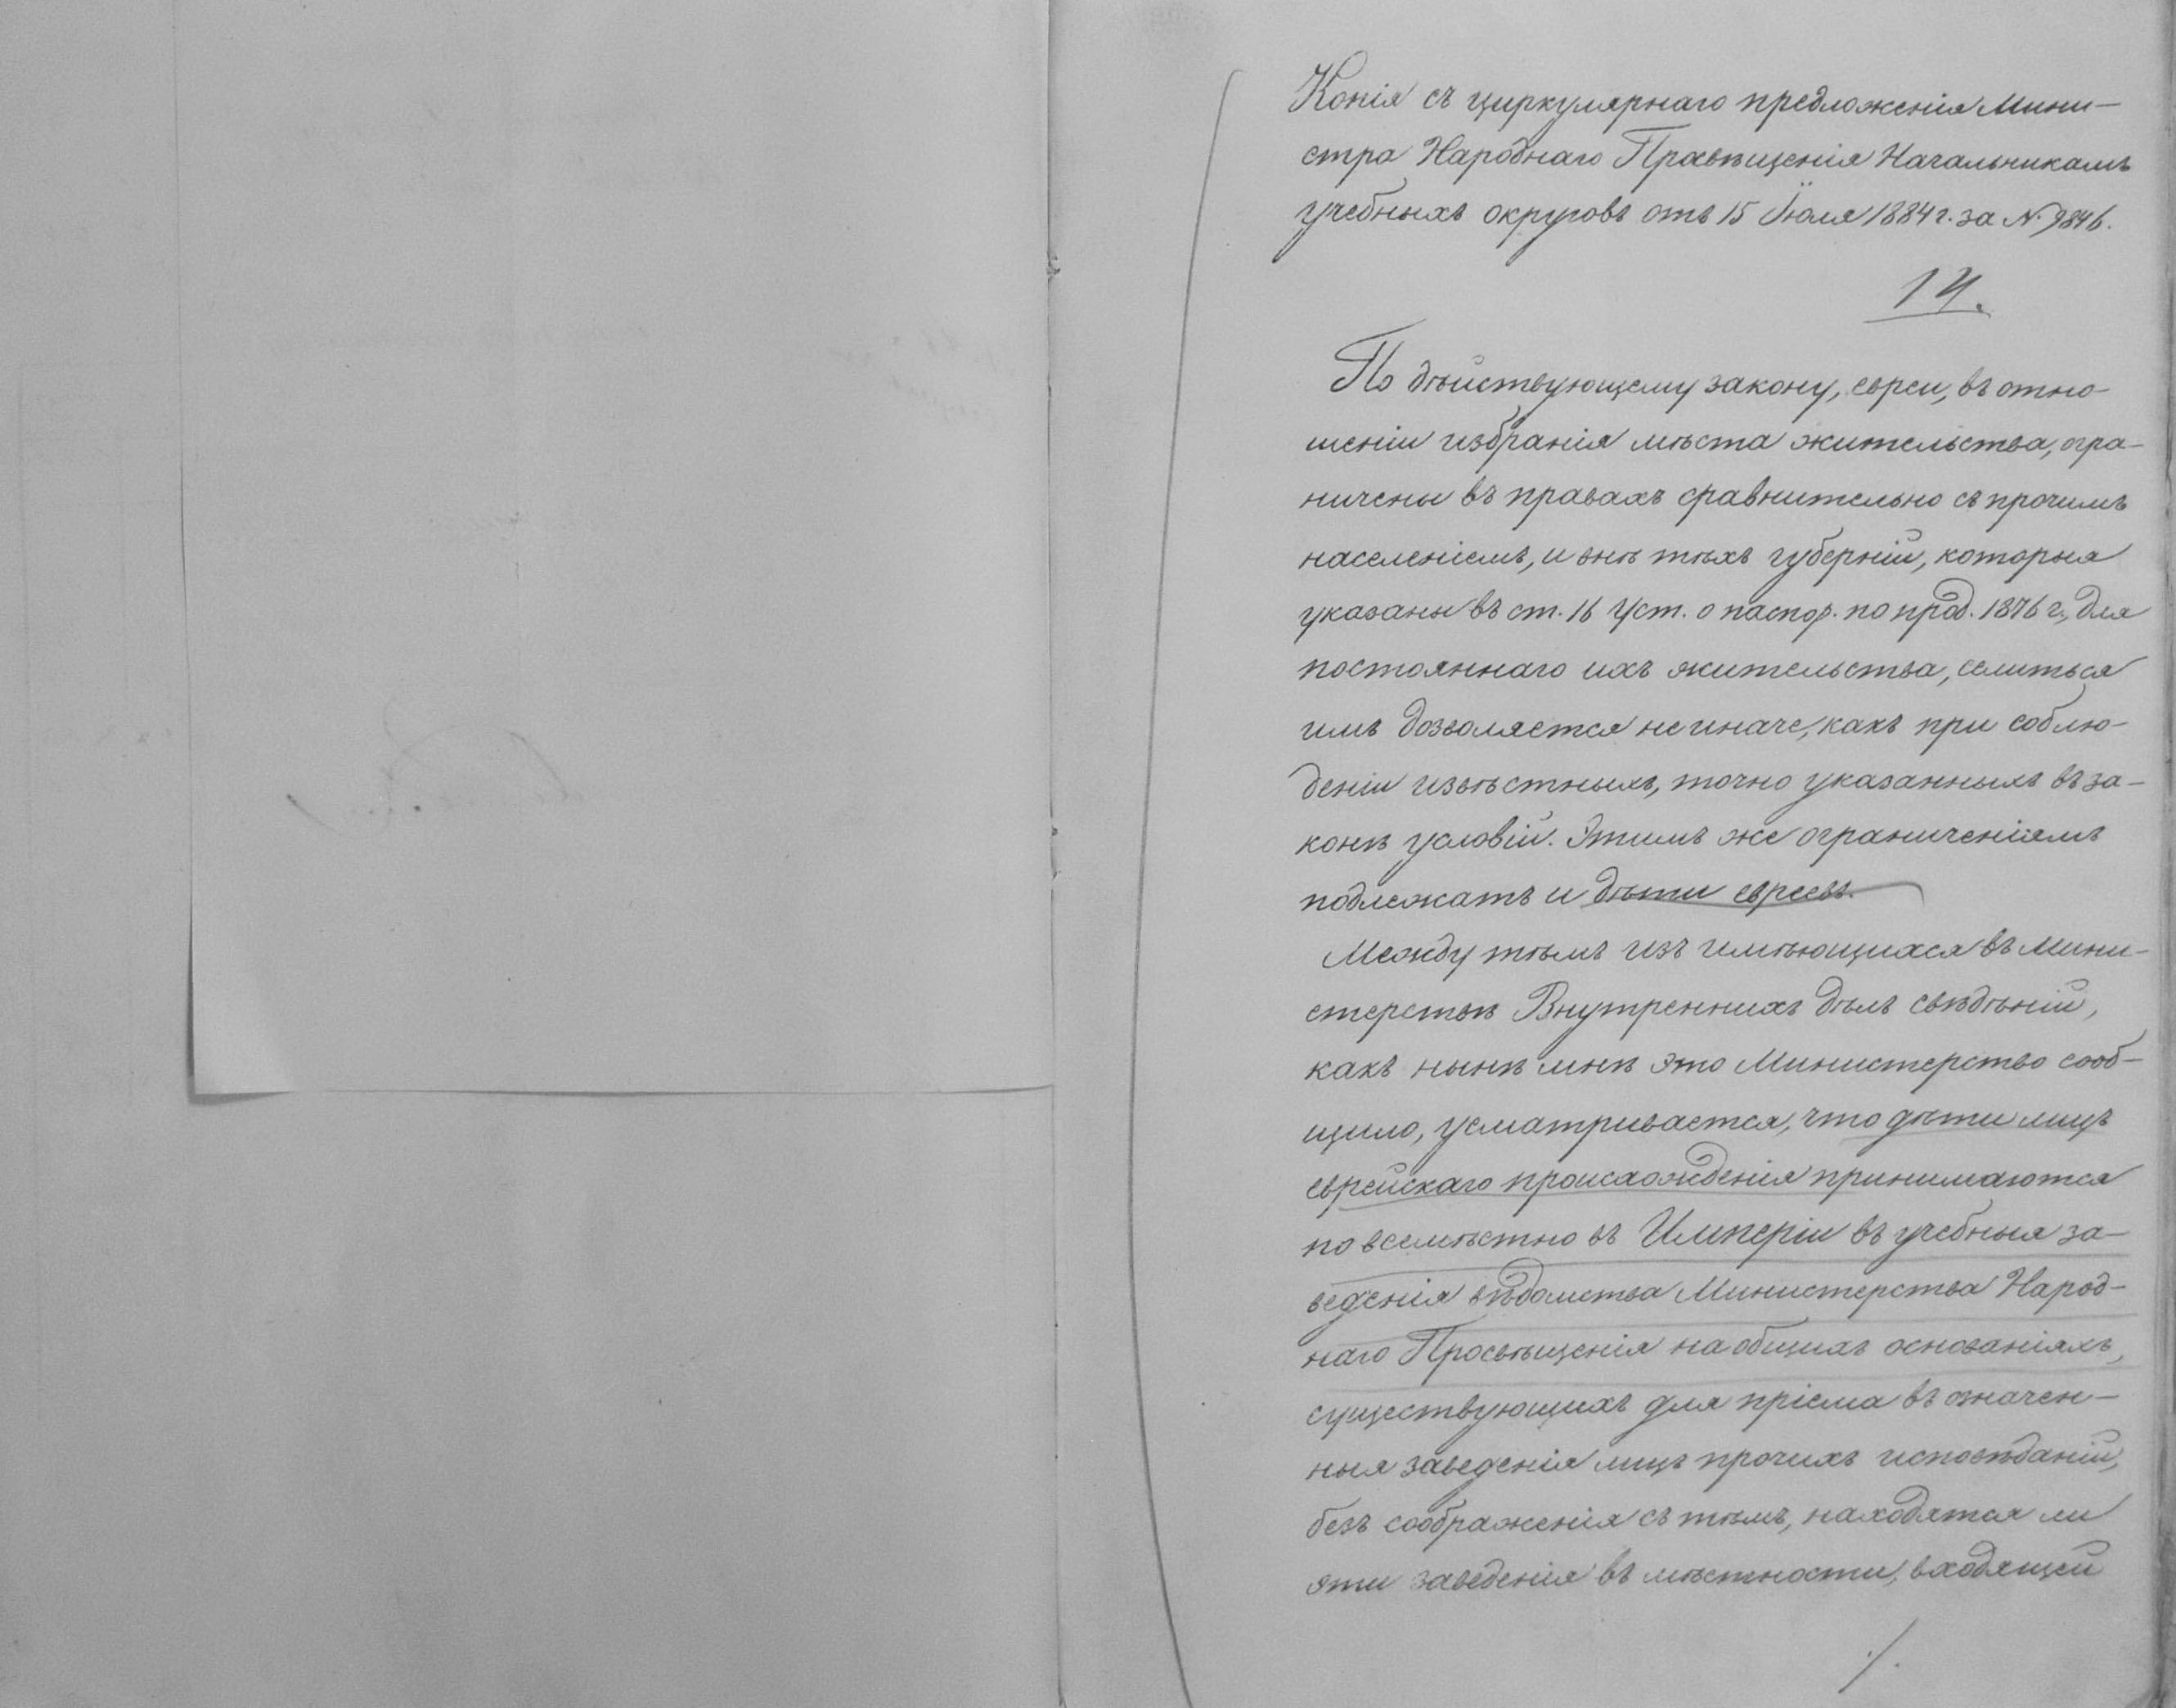 Копія съ циркулярнаго предложенія Мини-
стра Народнаго Просвѣщенія Начальникамъ
учебныхъ округовъ отъ 15 Іюля 1884 г. за №. 9846.
14.
По дѣйствующему закону, евреи, въ отно-
шеніи избранія мѣста жительства, огра-
ничены въ правахъ сравнительно съ прочимъ
населеніемъ, и внѣ тѣхъ губерній, которыя
указаны въ ст. 16 Уст. о паспор. по прод. 1876 г., для
постояннаго ихъ жительства, селиться
имъ дозволяется не иначе, какъ при соблю-
деніи извѣстныхъ, точно указанныхъ въ за-
конѣ условій. Этимъ же ограниченіямъ
подлежатъ и дѣти евреевъ.
Между тѣмъ изъ имѣющихся въ Мини-
стерствѣ Внутреннихъ дѣлъ свѣдѣній,
какъ нынѣ мнѣ это Министерство сооб-
щило, усматривается, что дѣти лицъ
еврейскаго происхожденія принимаются
повсемѣстно въ Имперіи въ учебныя за-
веденія вѣдомства Министерства Народ-
наго Просвѣщенія на общихъ основаніяхъ,
существующихъ для пріема въ означен-
ныя заведенія лицъ прочихъ исповѣданій,
безъ соображенія съ тѣмъ, находятся ли
эти заведенія въ мѣстности, входящей
./.